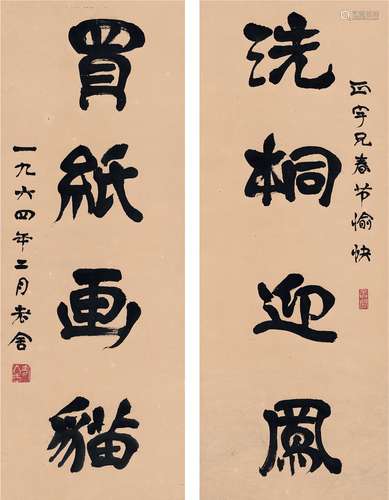 正宇兄春节愉快
洗桐迎鳳
買紙画貓
一九六四年二月老舍